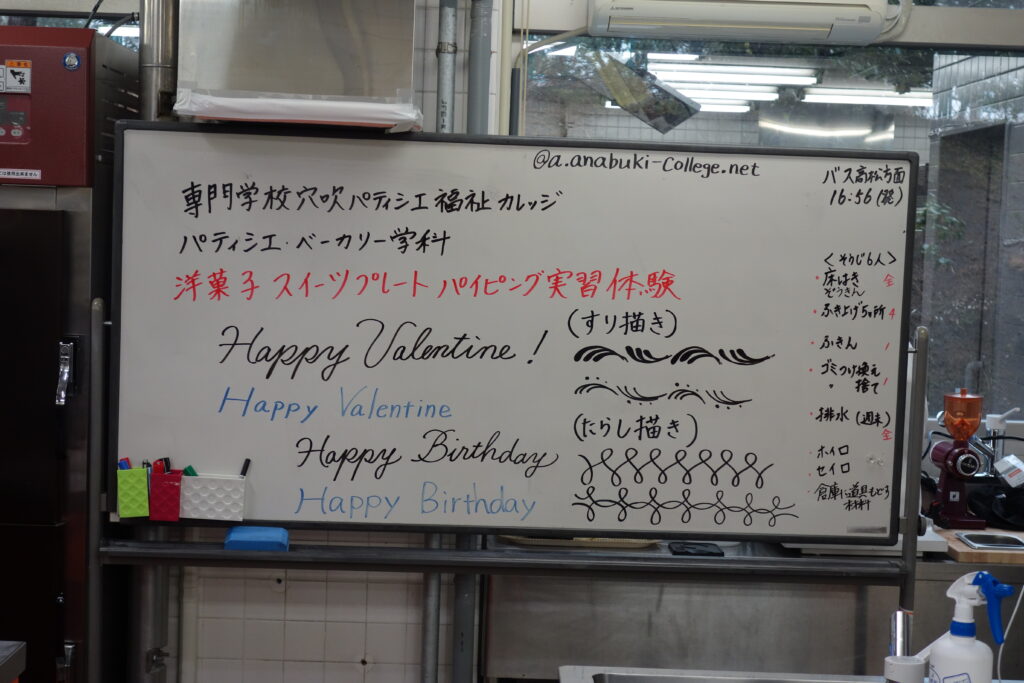 @a.anabuki-college.net
専門学校穴吹パティシエ福祉カレッジ
パティシエ・ベーカリー学科
洋菓子 スイーツプレート パイピング実習体験
Happy Valentine!
Happy Valentine
Happy Birthday
Happy Birthday
(すり描き)
(たらし描き)
バス高松方面
16:56
<そうじ6人>
・床はき 全
ぞうきん
・ふき上げ5ヶ所 4
・ふきん 1
・ゴミつけ換え
〃 捨て 1
・排水(週末)
全
・ホイロ
・セイロ
・倉庫に道具もどす
材料